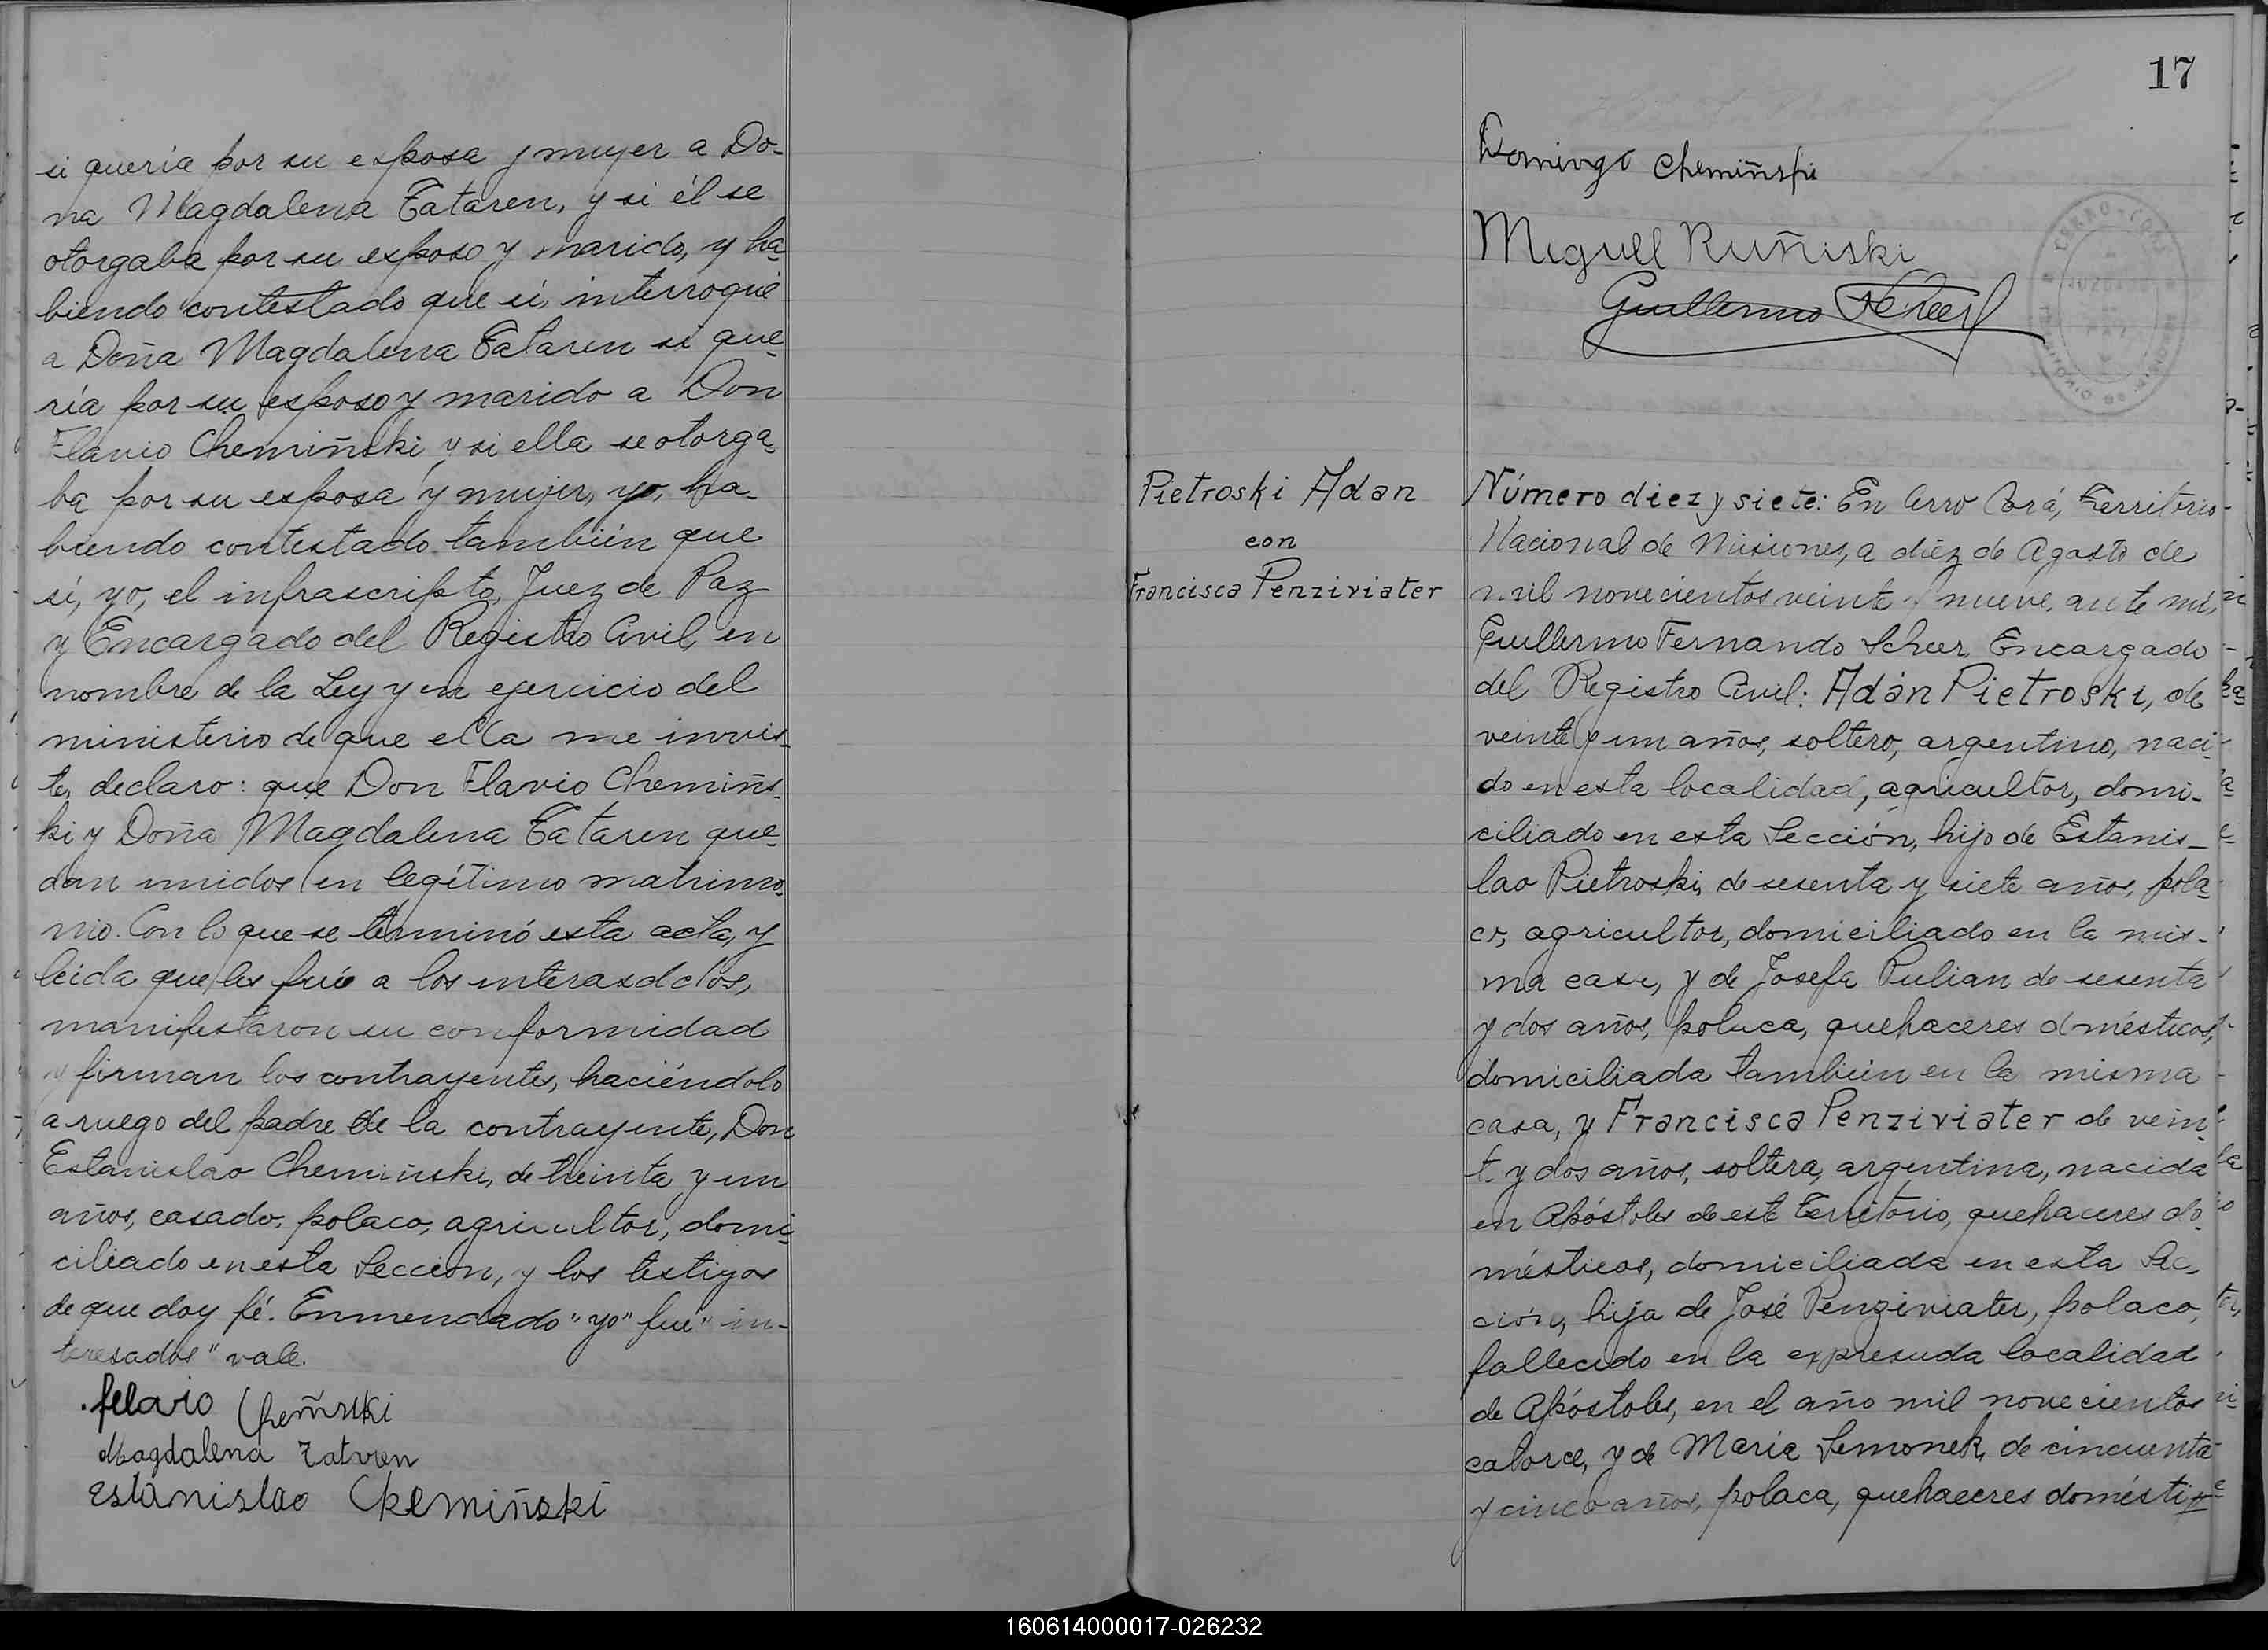 si quería por su esposa y mujer a Do-
ña Magdalena Tataren, y si él se
otorgaba por su esposo y marido, y ha-
biendo contestado que sí, interrogué
a Doña Magdalena Tataren si que-
ría por su esposo y marido a Don
Flavio Chemiñski y si ella se otorga-
ba por su esposa y mujer, yo, ha-
biendo contestado también que
sí, yo, el infrascripto, Juez de Paz
y Encargado del Registro Civil, en
nombre de la Ley y en ejercicio del
ministerio de que ella me invis-
te, declaro: que Don Flavio Chemiñs-
ki y Doña Magdalena Tataren que-
dan unidos en legítimo matrimo-
nio. Con lo que se terminó esta acta, y
leida que les fué a los
manifestaron su conformidad
y firman los contrayentes, haciéndolo
a ruego del padre de la contrayente, Don
Estanislao Chemiñski, de treinta y un
años, casado, polaco, agricultor, domi-
ciliado en esta Sección, y los testigos
de que doy fé. Enmendado "yo" fué" in-
teresados" vale.
felavio Chemñski
Magdalena Tatoren
Estanislao Chemiñski
17
Domingo Chemiñski
Miguel Ruñiski
Guillermo Scheer
CERRO-CORÁ
JUZGADO DE PAZ
Pietroski Adan
con
Francisca Penziviater
Número diez y siete: En Cerro Corá, Territorio
Nacional de Misiones, a diez de Agosto de
mil novecientos veinte y nueve, ante mí,
Guillermo Fernando Scheer, Encargado
del Registro Civil: Adán Pietroski, de
veinte y un años, soltero, argentino, naci-
do en esta localidad, agricultor, domi-
ciliado en esta Sección, hijo de Estanis-
lao Pietroski, de sesenta y siete años, pola-
co, agricultor, domiciliado en la mis-
ma casa, y de Josefa Pulian de sesenta
y dos años, polaca, quehaceres domésticos,
domiciliada también en la misma
casa, y Francisca Penziviater de vein-
te y dos años, soltera, argentina, nacida
en Apóstoles de este Territorio, quehaceres do-
mésticos, domiciliada en esta Sec-
ción, hija de José Penziviater, polaco,
fallecido en la expresada localidad
de Apóstoles, en el año mil novecientos
catorce, y de María Semonek, de cincuenta
y cinco años, polaca, quehaceres domésti-
160614000017-026232